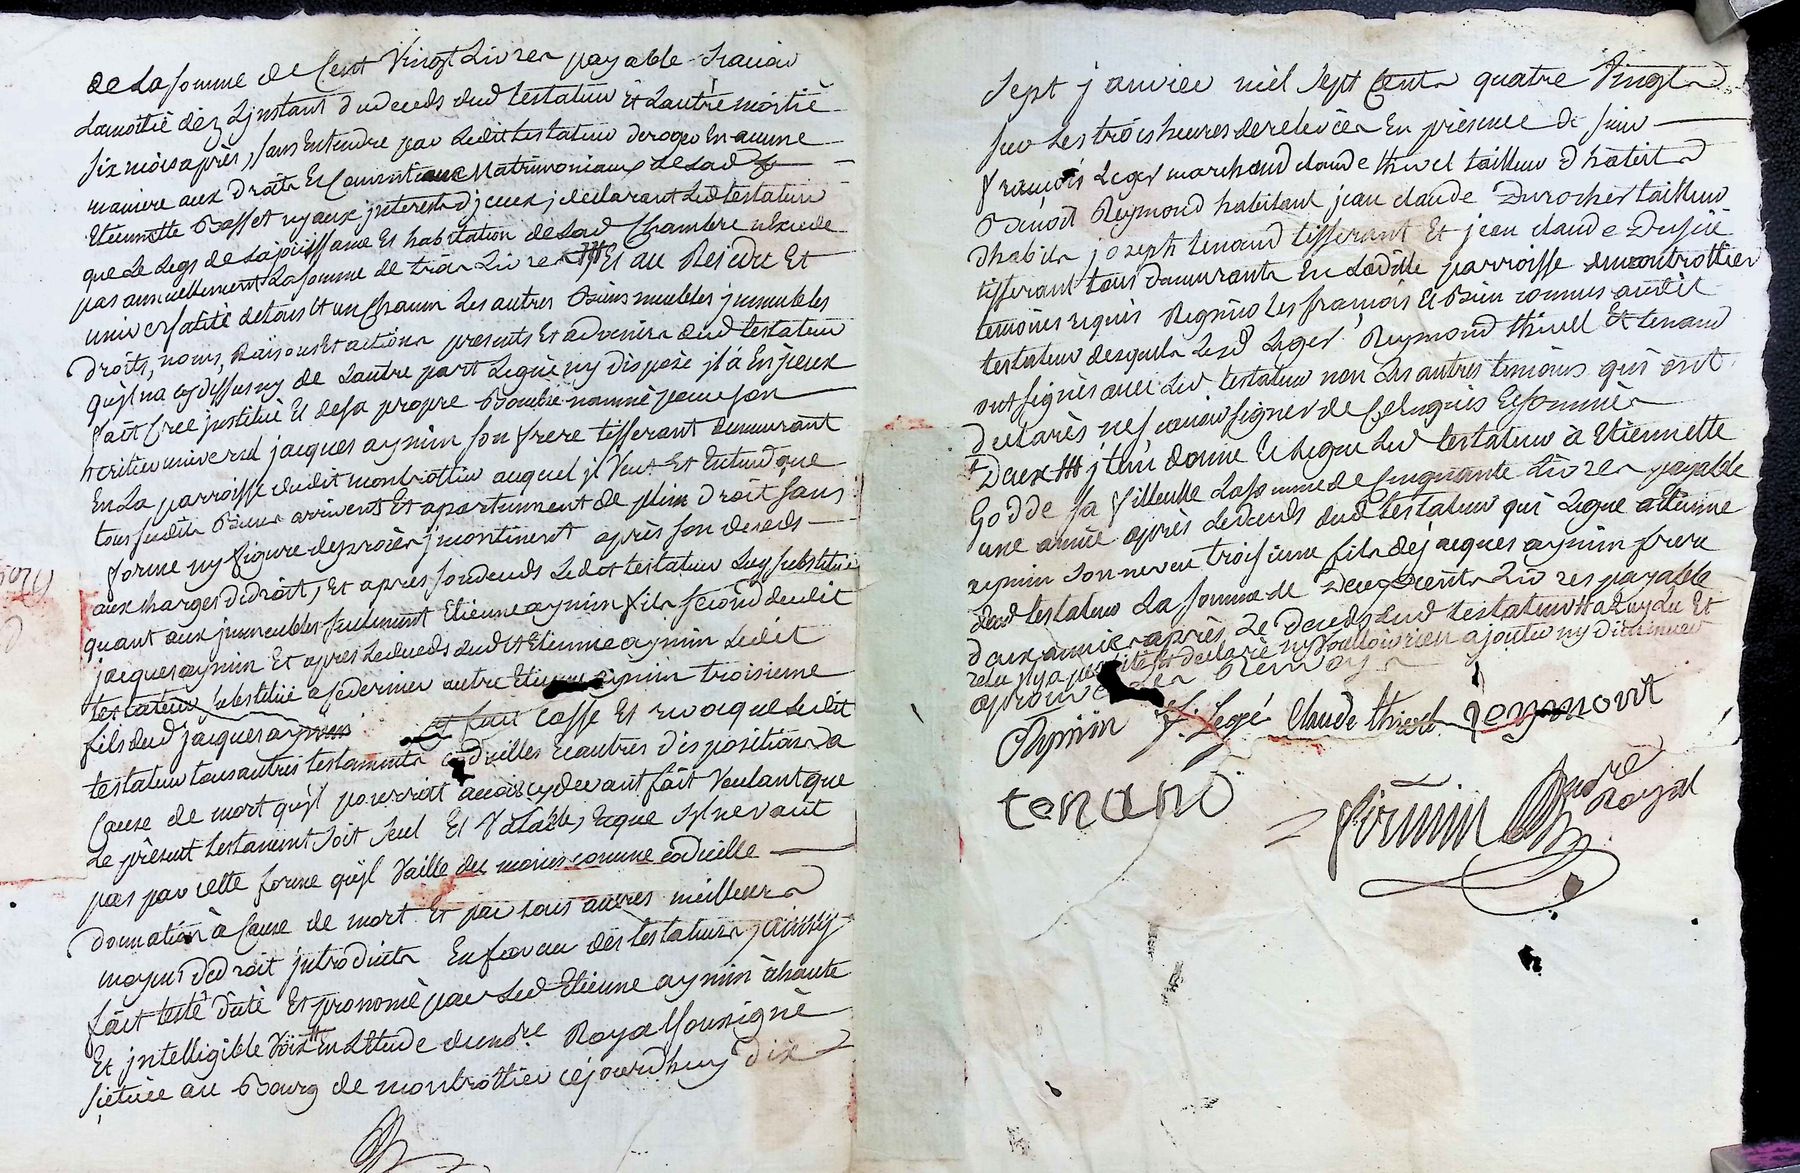 de La somme de Cent Vingt Livres payable Scavoir
Lamoitié dez Linstant dud deceds dud testateur et Lautre moitié
six mois après, sans Entendre par Ledit testateur deroger En aucune
maniere aux droits Et Conventions Matrimoniaux de Lad
Etiennette Basset ny aux jnterests d'jceux, declarant Led testateur
que Le Legs de La jouissance Et habitation de Lad Chambre n'Excede
pas annuellement La somme de trois Livres Et au Residu Et
universalité de tous Et un Chacun Les autres Biens meubles jmmeubles
droits, noms, Raisons Et actions presents Et advenirs dud testateur
qu'jl na cy dessus ny de Lautre part Legué ny disposé jl a En jceux
fait Créé jnstitué Et de sa propre Bouche nommé pour son
heritier universel jacques aymin son frere tisserant demeurant
En La parroisse dudit montrottier auquel jl Veut Et Entend que
tous sesdits Biens arrivent Et apartiennent de plein droit sans
forme ny figure de procès jncontinent après son deceds
aux charges de droit, Et après son deceds Ledit testateur Luy substitue
quant aux jmmeubles seulement Etienne aymin fils second dudit
jacques aymin Et apres Le deceds dud Etienne aymin Ledit
testateur substitue a ce dernier autre Etienne aymin troisieme
fils dud jacques aymin fait Casse Et revoque Ledit
testateur tous autres testaments codicilles Et autres dispositions a
Cause de mort qu'jl pourroit avoir cy devant fait Voulant que
Le present testament soit seul Et Valable, Et que s'jl ne vaut
pas par cette forme qu'jl Vaille du moins comme codicille
donnation à Cause de mort Et par tous autres meilleurs
moyens de droit jntroduits En faveur des testateurs jainsy
fait testé dicté Et prononcé par Led Etienne aymin à haute
Et jntelligible Voix En L'Etude du nore Royal soussigné
située au Bourg de montrottier cejourdhuy dix
Sept janvier mil sept Cents quatre Vingts
sur Les trois heures de relevée En présence de sieur
françois Leger marchand claude thivel tailleur d'habits
Benoit Reymond habitant jean claude Durocher tailleur
d'habits joseph tenand tisserant Et jean claude Dussué
tisserant tous demeurants En Ladite parroisse de montrottier
temoins requis Regnicoles françois Et Bien connus audit
testateur desquels Lesd Leger Reymond thivel Et tenand
ont signés avec Led testateur non Les autres temoins qui ont
declarés ne sçavoir signer de Ce Enquis Et sommés
Deux j tem donne Et Legue Led testateur à Etiennette
Godde sa filleulle La somme de Cinquante Livres payable
une année après Le deceds dud testateur qui Legue a Etienne
aymin son neveu troisieme fils de jacques aymin frere
dud testateur La somme de Deux cents Livres payable
deux années après Le Deceds dud testateur a Luy du Et
Aymin f. Legé Claude thivel Reymont
tenand
firmin
nore
Royal